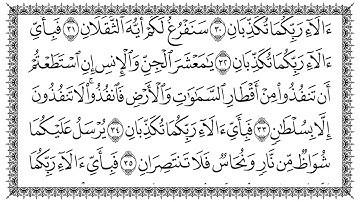 ءَالَآءِ رَبِّكُمَا تُكَذِّبَانِ ٣٠ سَنَفْرُغُ لَكُمْ أَيُّهَ الثَّقَلَانِ ٣١ فَبِأَيِّ
ءَالَآءِ رَبِّكُمَا تُكَذِّبَانِ ٣٢ يَا مَعْشَرَ الْجِنِّ وَالْإِنسِ إِنِ اسْتَطَعْتُمْ
أَن تَنفُذُوا مِنْ أَقْطَارِ السَّمَوَاتِ وَالْأَرْضِ فَانفُذُوا لَا تَنفُذُونَ
إِلَّا بِسُلْطَانٍ ٣٣ فَبِأَيِّ ءَالَآءِ رَبِّكُمَا تُكَذِّبَانِ ٣٤ يُرْسَلُ عَلَيْكُمَا
شُوَاظٌ مِّن نَّارٍ وَنُحَاسٌ فَلَا تَنتَصِرَانِ ٣٥ فَبِأَيِّ ءَالَآءِ رَبِّكُمَا